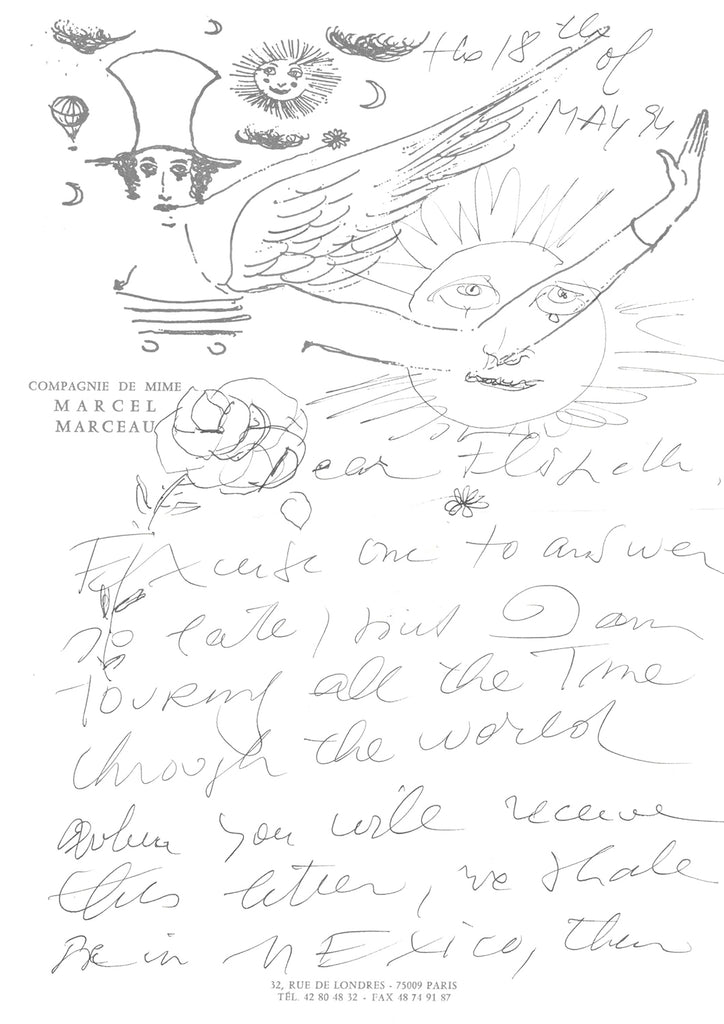 the 18th of
MAY 94
COMPAGNIE DE MIME
MARCEL
MARCEAU
Dear Elisabeth,
Excuse me to answer
so late, but I am
TOURING all the Time
through the world
when you will receive
this letter, we shall
BE in MEXICO, then
32, RUE DE LONDRES - 75009 PARIS
TÉL. 42 80 48 32 - FAX 48 74 91 87